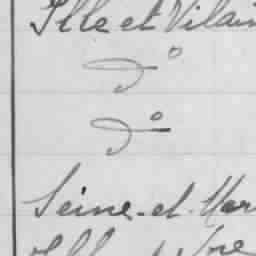 Ille et Vilain
d°
d°
Seine-et-Mar